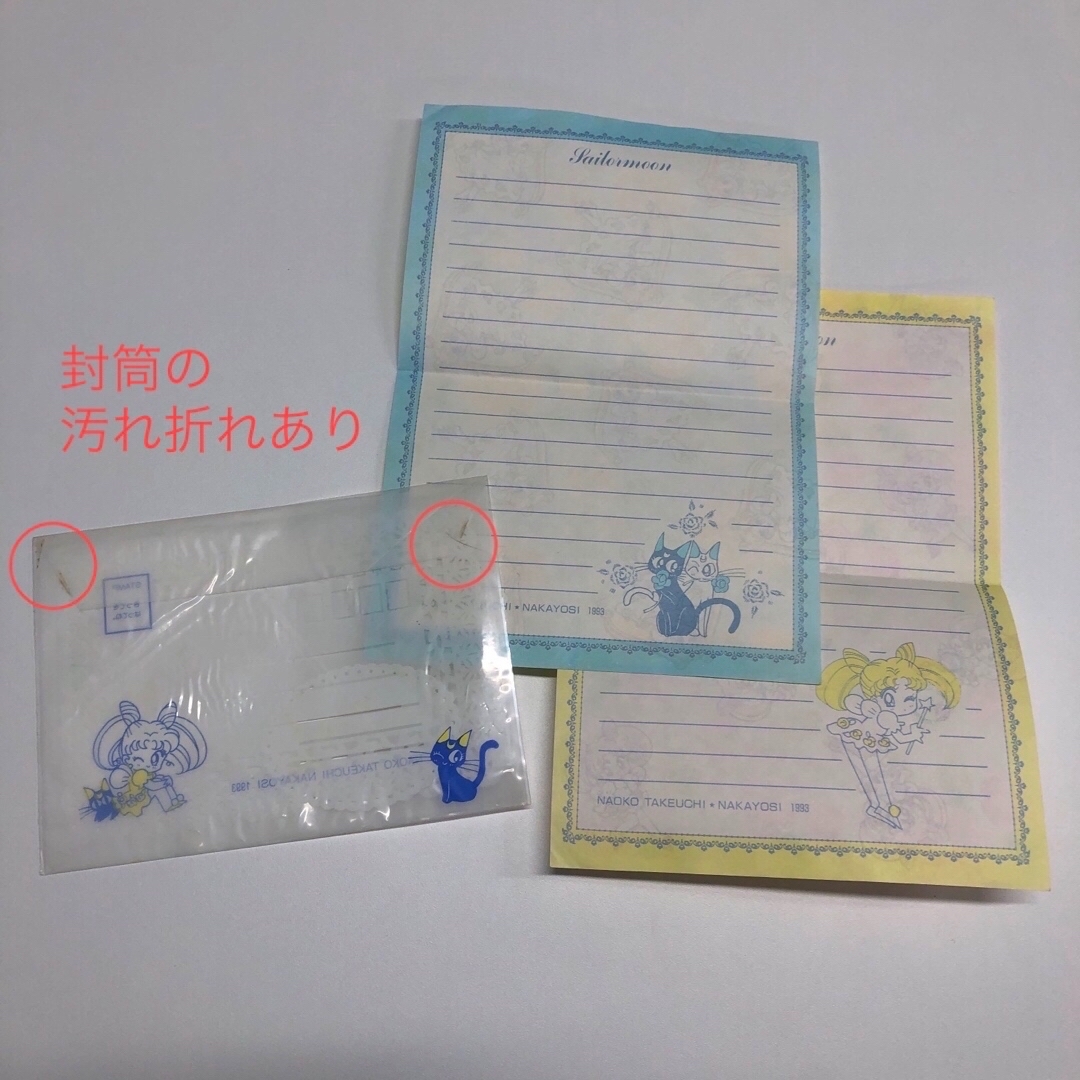 封筒の
汚れ折れあり
Sailormoon
HI★NAKAYOSI 1993
on
NAOKO TAKEUCHI★NAKAYOSI 1993
STAMP
OKO TAKEUCHI NAKAYOSI 1993